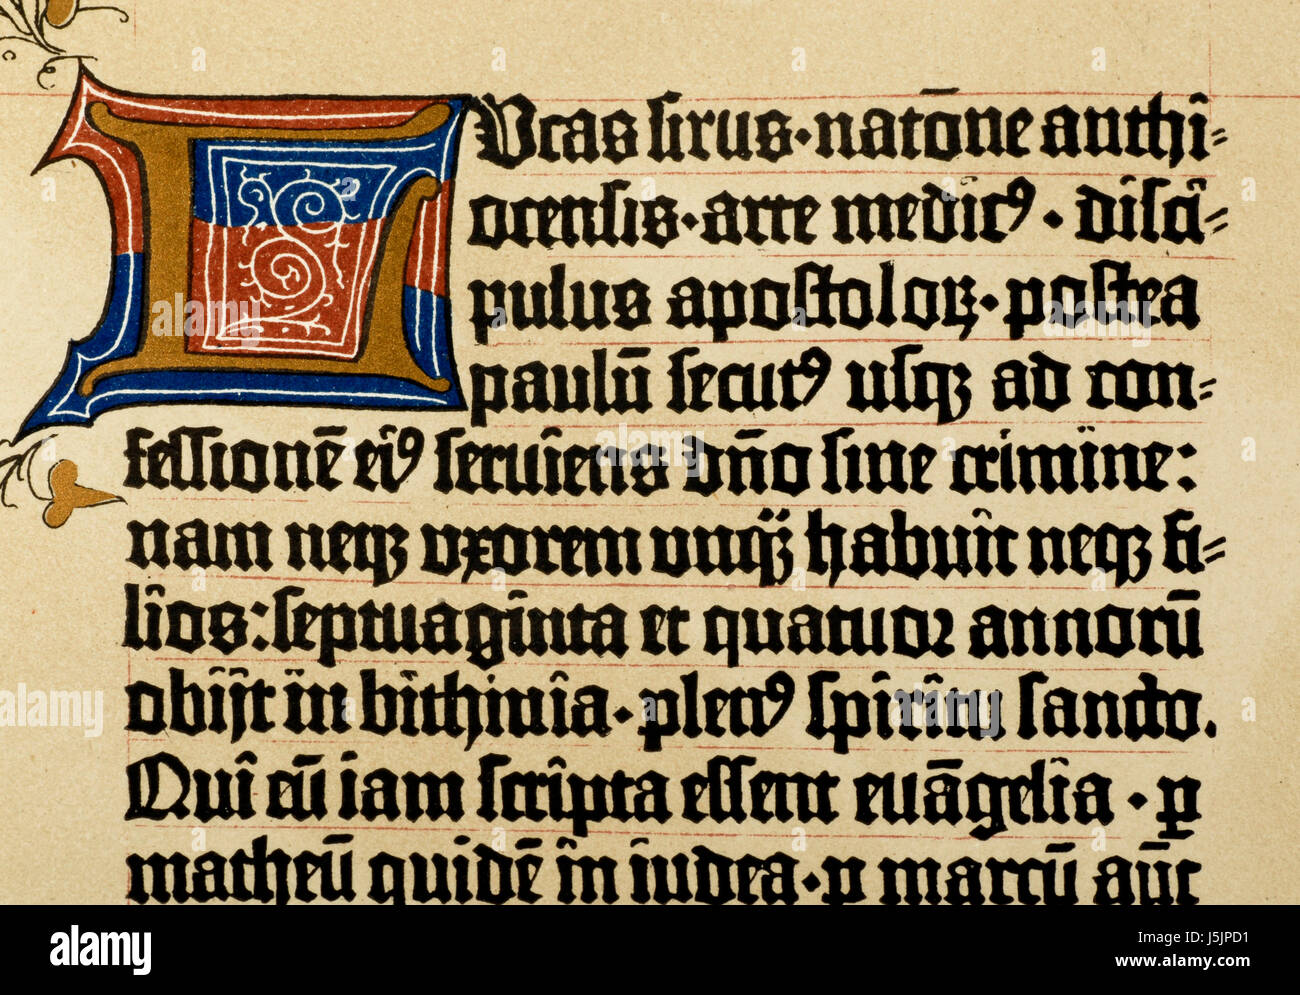 LUcas sirus·natōne anthi=
ocensis·arte medicꝰ·disci=
pulus apostoloꝝ·postea
paulū secutꝰ usqꝫ ad con=
fessionē eiꝰ serviens dño sine crimine:
nam neqꝫ vxorem vnqꝫ̄ habuit neqꝫ fi=
lios:septuaginta et quatuor annorū
obijt in bithinia·plenꝰ spiritu sancto.
Qui cū iam scripta essent evāgelia·ꝑ
matheū quidē in iudea·ꝑ marcū aūt
alamy
Image ID: J5JPD1
www.alamy.com